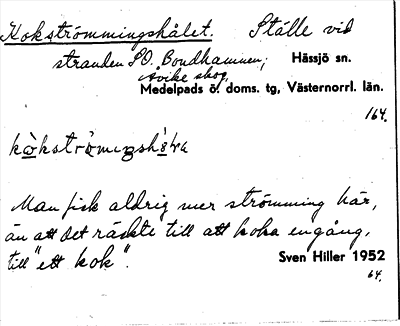 Kokströmmingshålet. Ställe vid
stranden SO. Bondhamnen; Hässjö sn.
Åvike skog,
Medelpads ö. doms. tg, Västernorrl. län.
164.
Man fick aldrig mer strömming här,
än att det räckte till att koka en gång,
till "ett kok".
Sven Hiller 1952
64.